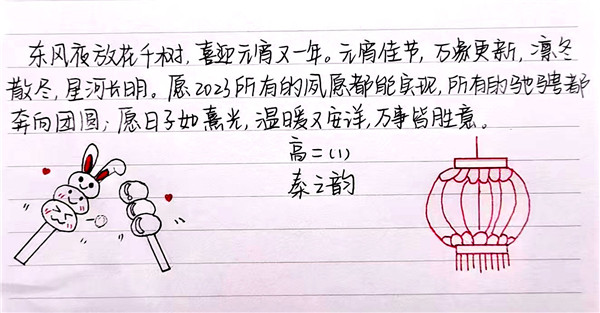 东风夜放花千树，喜迎元宵又一年。元宵佳节，万象更新，凛冬
散尽，星河长明。愿2023所有的夙愿都能实现，所有的驰骋都
奔向团圆；愿日子如熹光，温暖又安详，万事皆胜意。
高二(1)
秦之韵